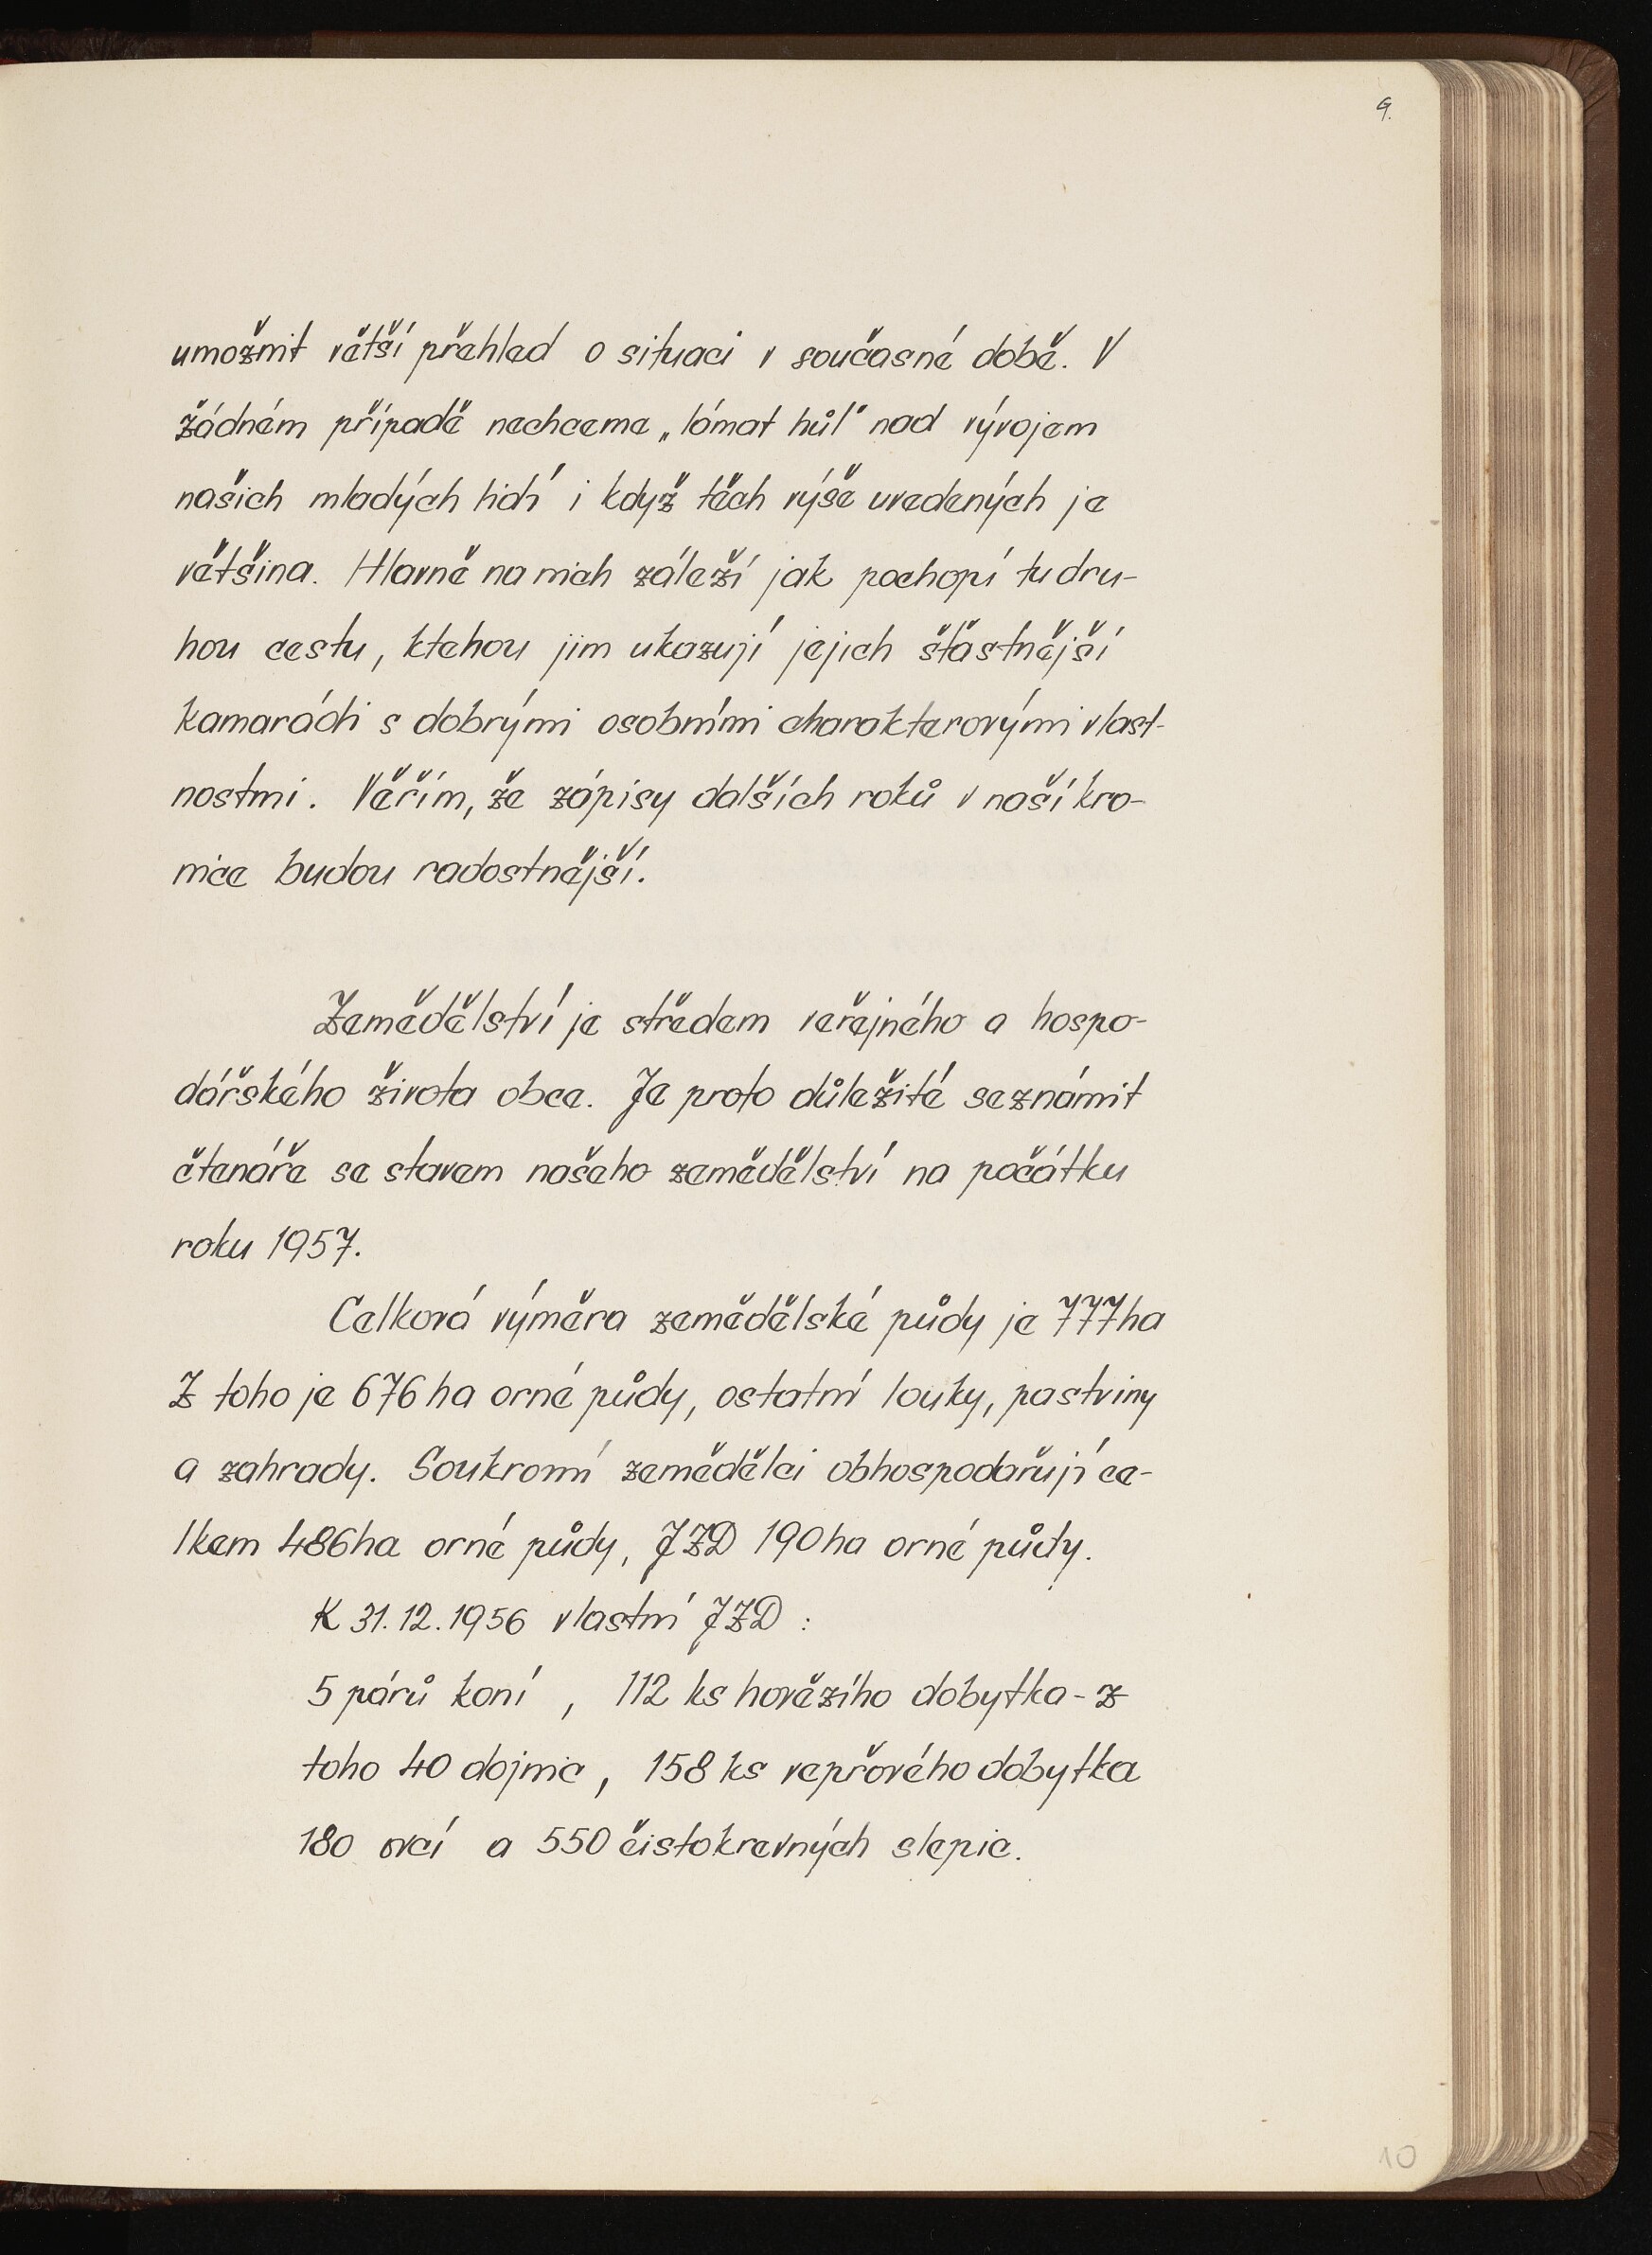 9.
umožnit větší přehled o situaci v současné době. V
žádném případě nechceme „lámat hůl" nad vývojem
našich mladých lidí i když těch výše uvedených je
většina. Hlavně na nich záleží jak pochopí tu dru-
hou cestu, ktehou jim ukazují jejich šťastnější
kamarádi s dobrými osobními charakterovými vlast-
nostmi. Věřím, že zápisy dalších roků v naší kro-
nice budou radostnější.
Zemědělství je středem veřejného a hospo-
dářského života obce. Je proto důležité seznámit
čtenáře se stavem našeho zemědělství na počátku
roku 1957.
Celková výměra zemědělské půdy je 777ha
Z toho je 676 ha orné půdy, ostatní louky, pastviny
a zahrady. Soukromí zemědělci obhospodařují ce-
lkem 486ha orné půdy, JZD 190ha orné půdy.
K 31.12.1956 vlastní JZD :
5 párů koní , 112 ks hovězího dobytka - z
toho 40 dojnic, 158 ks vepřového dobytka
180 ovcí a 550 čistokrevných slepic.
10